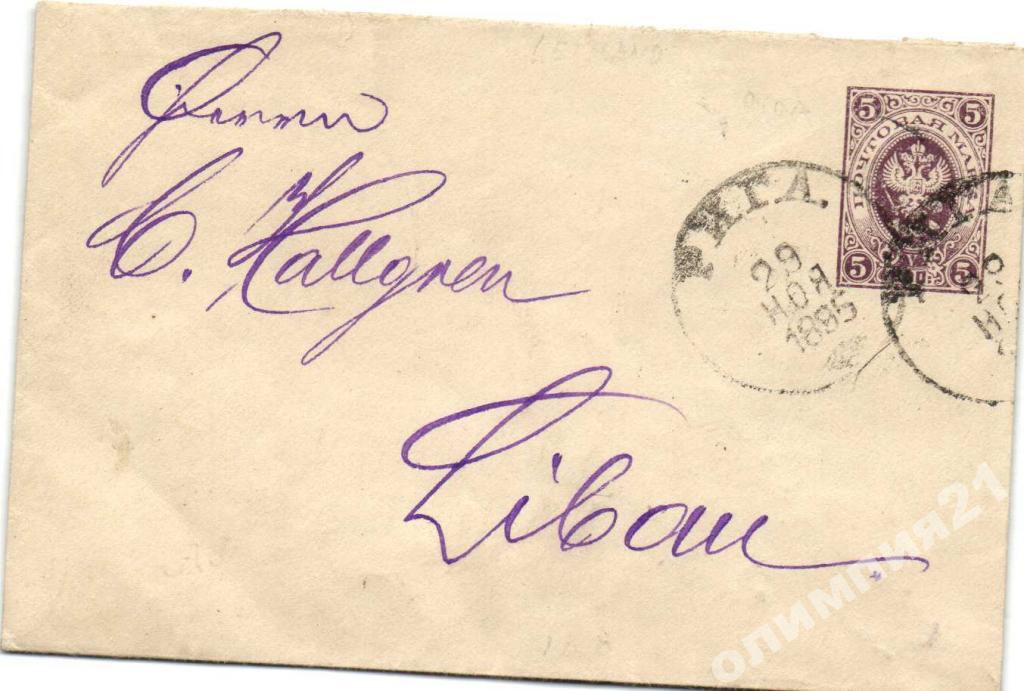 Herrn
C. Hallgren
Libau
5 5
ПОЧТОВАЯ МАРКА
5 5
РИГА.
29
НОЯ
1885
РИГА
29
олимпия21